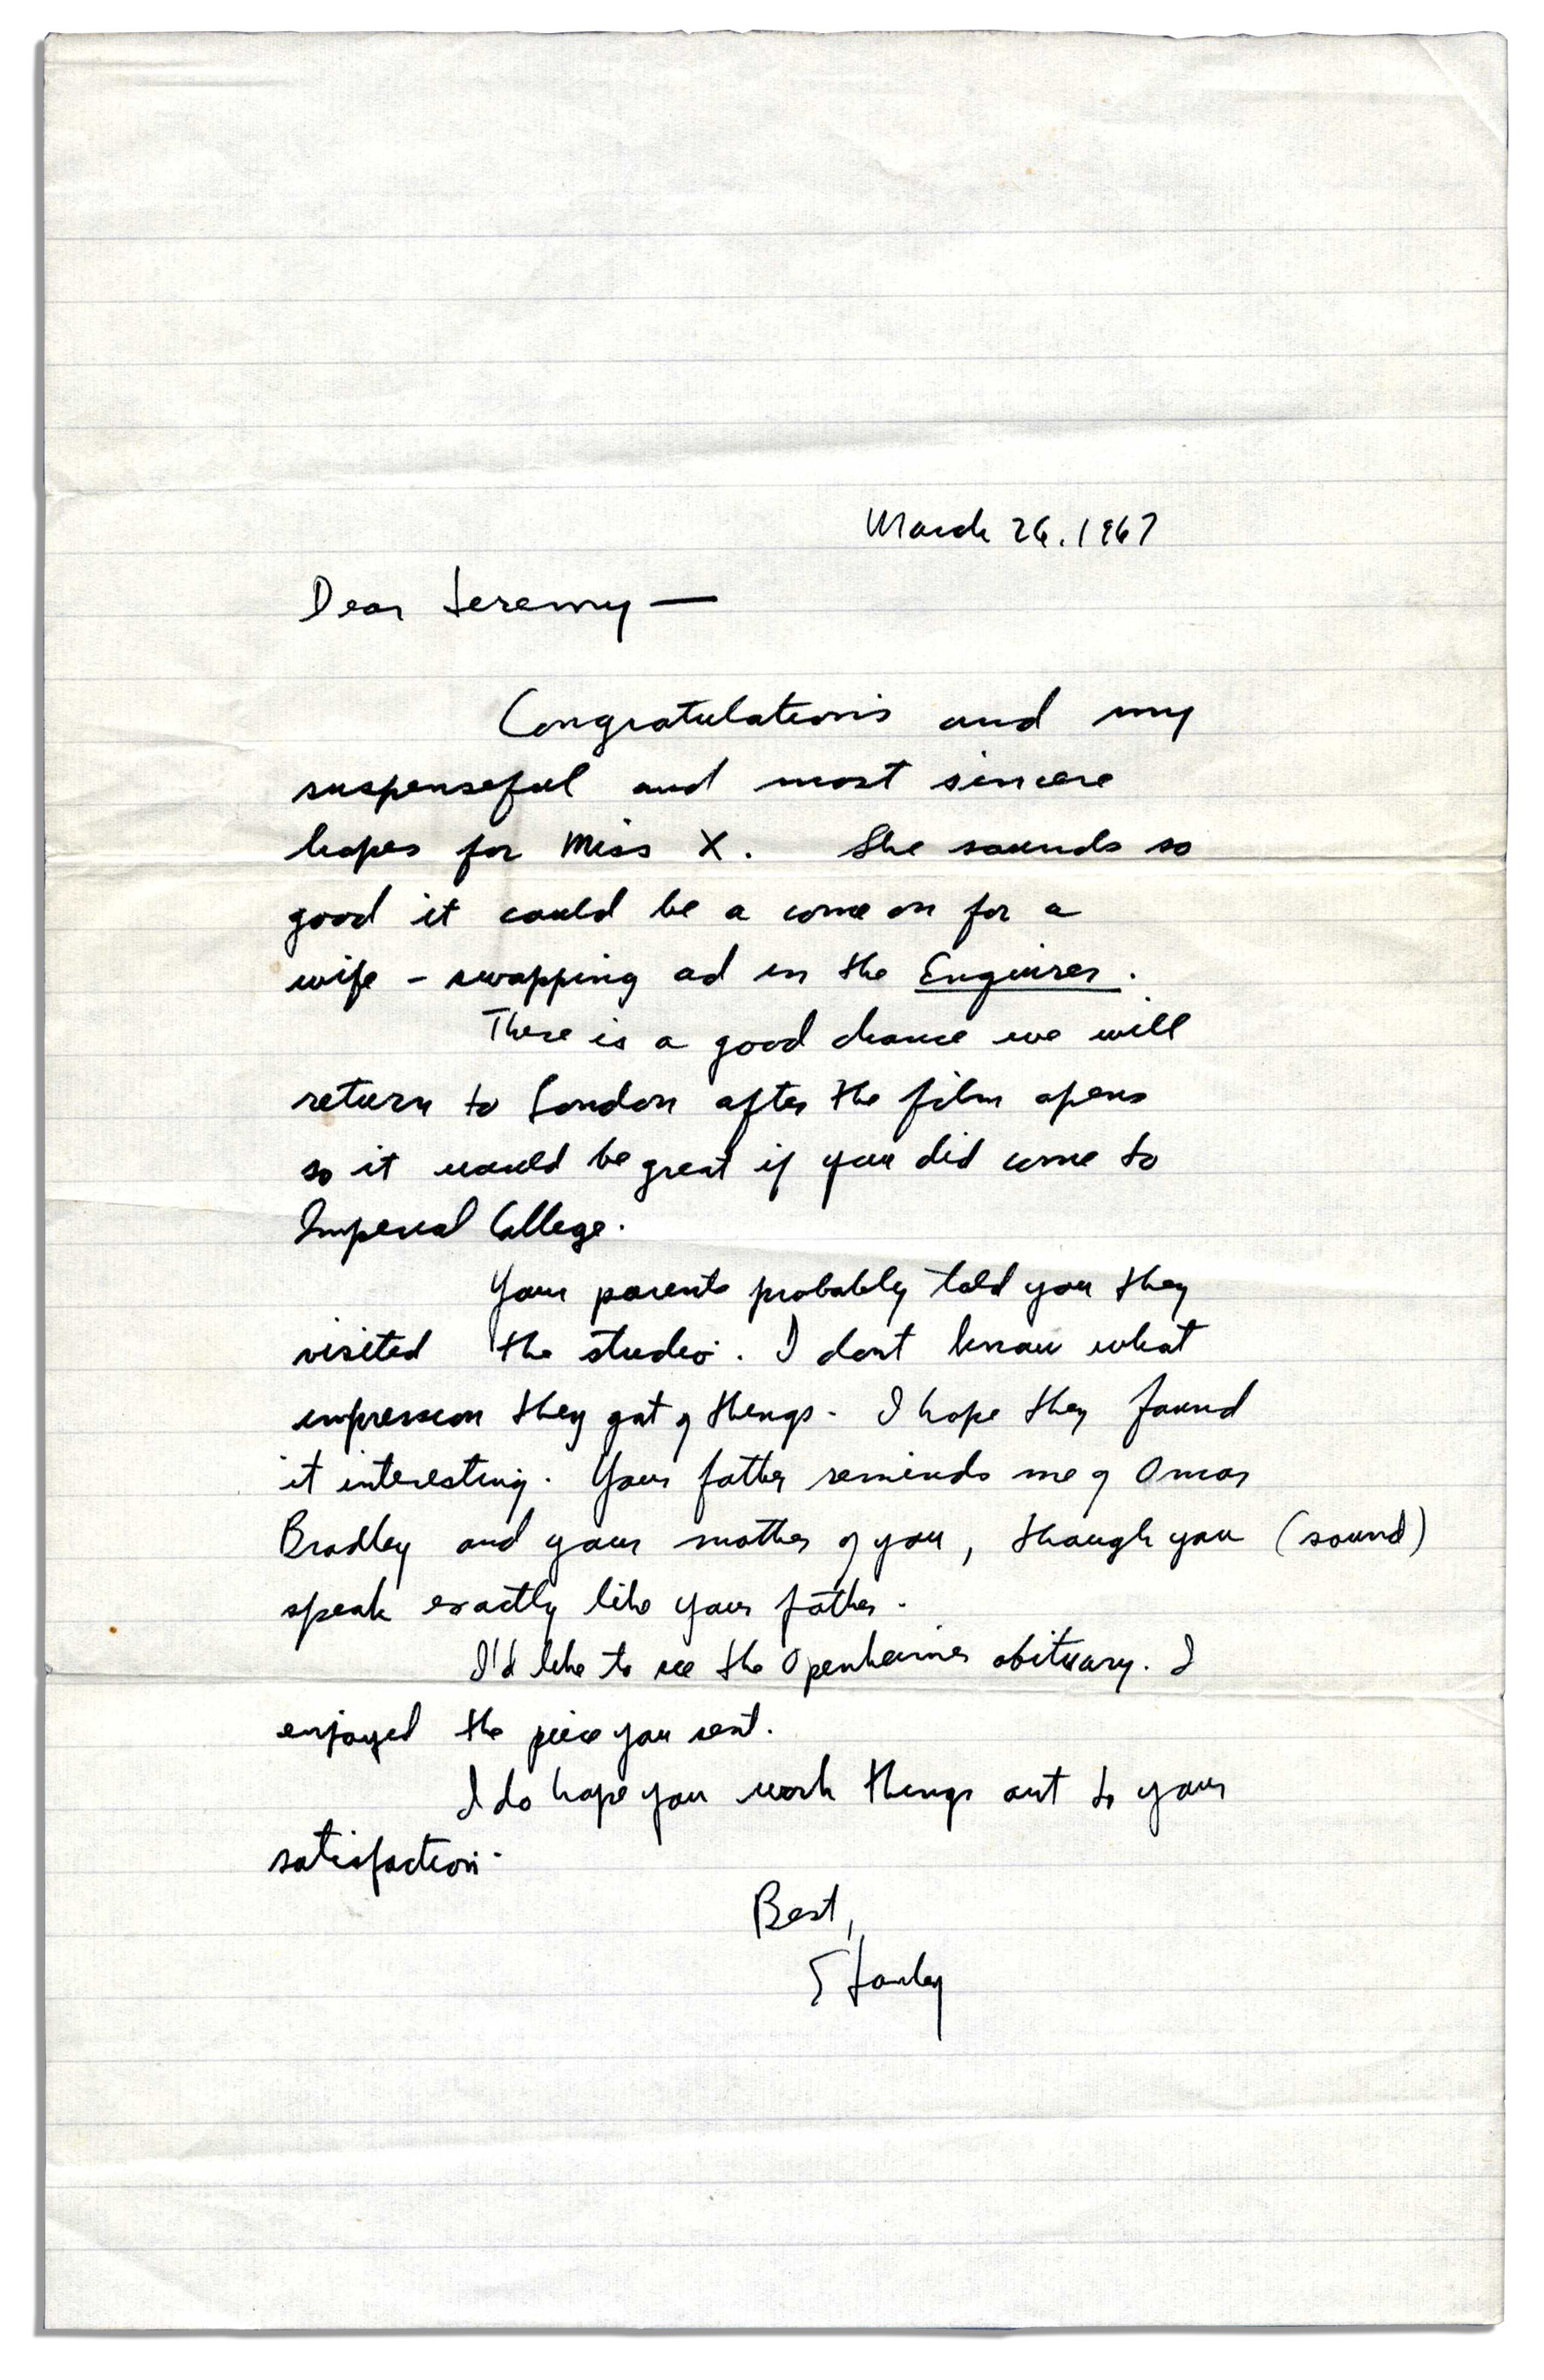 March 26, 1967
Dear Jeremy —
Congratulations and my
suspenseful and most sincere
hopes for Miss X. She sounds so
good it could be a come on for a
wife - swapping ad in the Enquirer.
There is a good chance we will
return to London after the film opens
so it would be great if you did come to
Imperial College.
Your parents probably told you they
visited the studio. I dont know what
impression they got of things. I hope they found
it interesting. Your father reminds me of Omar
Bradley and your mother of you, though you (sound)
speak exactly like your father.
I'd like to see the Openheimer obituary. I
enjoyed the piece you sent.
I do hope you work things out to your
satisfaction.
Best,
Stanley